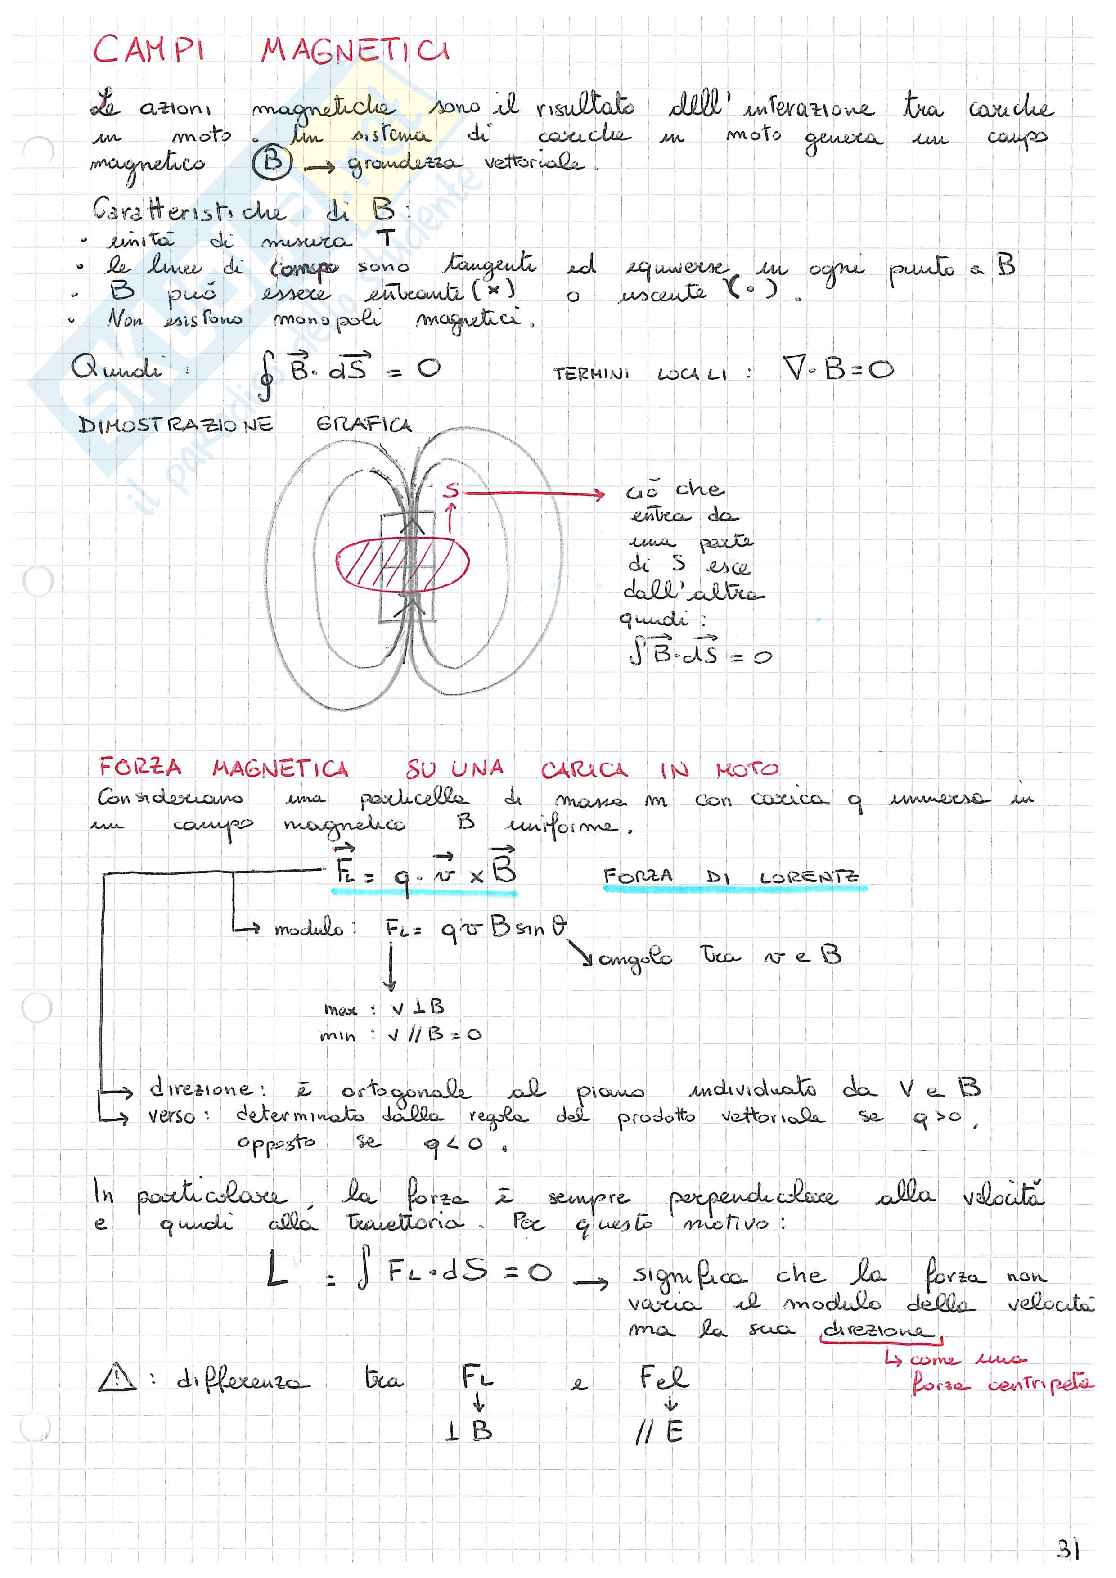 CAMPI MAGNETICI
Le azioni magnetiche sono il risultato dell'interazione tra cariche
in moto. Un sistema di cariche in moto genera un campo
magnetico B → grandezza vettoriale.
Caratteristiche di B:
• unità di misura T
• le linee di campo sono tangenti ed equiverse in ogni punto a B
• B può essere entrante (×) o uscente (•).
• Non esistono monopoli magnetici.
Quindi: ∮ B⃗ · dS⃗ = 0 TERMINI LOCALI: ∇·B=0
DIMOSTRAZIONE GRAFICA
S → ciò che
entra da
una parte
di S esce
dall'altra
quindi:
∫ B⃗ · dS⃗ = 0
FORZA MAGNETICA SU UNA CARICA IN MOTO
Consideriamo una particella di massa m con carica q immersa in
un campo magnetico B uniforme.
F⃗L = q · v⃗ × B⃗ FORZA DI LORENTZ
→ modulo: FL = qvB sin θ
angolo tra v e B
max: v ⊥ B
min: v // B = 0
→ direzione: è ortogonale al piano individuato da V e B
→ verso: determinato dalla regola del prodotto vettoriale se q>0,
opposto se q<0.
In particolare, la forza è sempre perpendicolare alla velocità
e quindi alla traiettoria. Per questo motivo:
L = ∫ FL · dS = 0 → significa che la forza non
varia il modulo della velocità
ma la sua direzione,
↳ come una
forza centripeta
⚠: differenza tra FL e Fel
↓ ↓
⊥ B // E
31